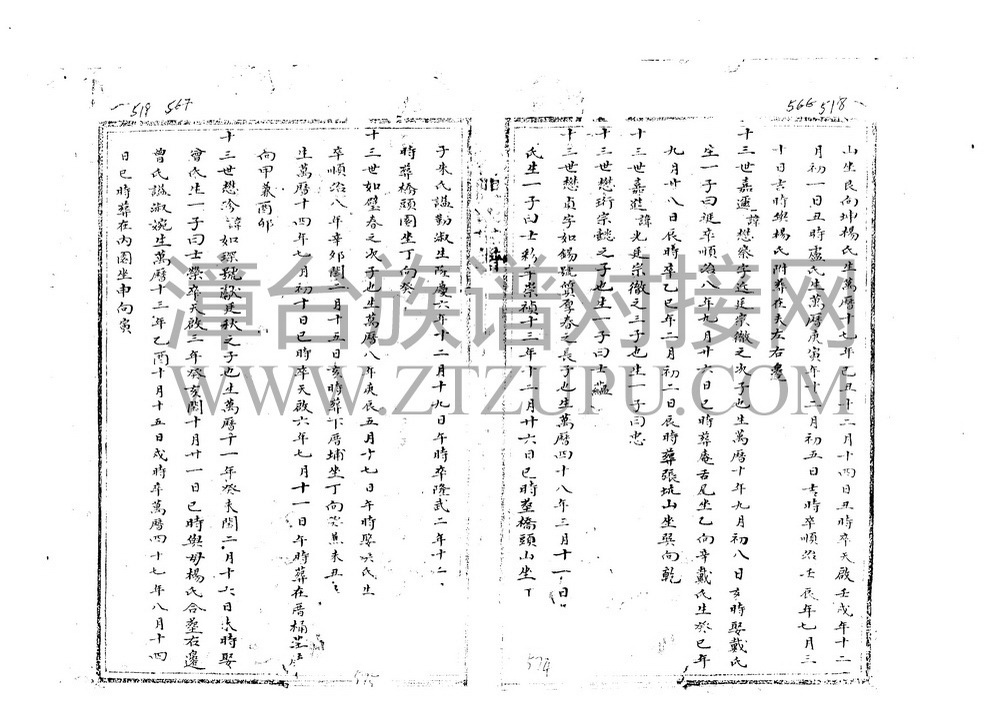 566 518
山坐艮向坤楊氏生萬曆十七年己丑十二月十四日丑時卒天啟壬戌年十二
月初一日丑時盧氏生萬曆庚寅年十二月初五日吉時卒順治壬辰年七月三
十日吉時與楊氏附葬在夫左右邊
十三世嘉遜諱懋察字延宗徹之次子也生萬曆十年九月初八日亥時娶戴氏
生一子曰進卒順治八年九月廿六日巳時葬庵舌尾坐乙向辛戴氏生於巳年
九月廿八日辰時卒乙巳年二月初二日辰時葬張坑山坐巽向乾
十三世嘉諱光廷宗徹之三子也生一子曰忠
十三世懋珩宗懿之子也生一子曰士蘊
十三世懋貞字如錫號質春之長子也生萬曆四十八年三月十一日
氏生一子曰士彩卒崇禎十三年十二月廿六日巳時塟橋頭山坐丁
519 567
子朱氏諡勤淑生隆慶六年十二月十九日午時卒隆武二年十二
時葬橋頭園坐丁向癸
十三世如璧春之次子也生萬曆八年庚辰五月十七日午時娶吳氏生
卒順治八年辛卯閏二月十五日亥時葬下厝埔坐丁向癸兼未丑
生萬曆十四年七月初十日巳時卒天啟六年七月十一日午時葬在厝桶坐
向甲兼酉卯
十三世懋諱如琛號猷廷秋之子也生萬曆十一年癸未閏二月十六日未時娶
曾氏生一子曰士榮卒天啟三年癸亥閏十月廿一日巳時與母楊氏合塟右邊
曾氏諡淑婉生萬曆十三年乙酉十月十五日戌時卒萬曆四十七年八月十四
日巳時葬在內園坐申向寅
574
漳台族谱对接网
WWW.ZTZUPU.COM